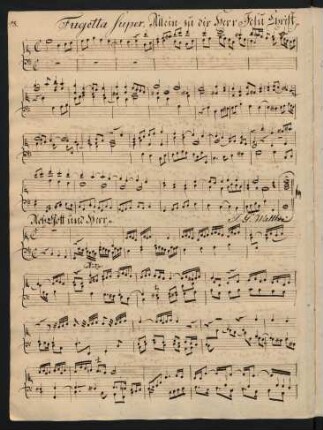 Fugetta super. Allein zu dir Herr Jesu Christ.
Ach Gott und Herr.
J. G. Walther